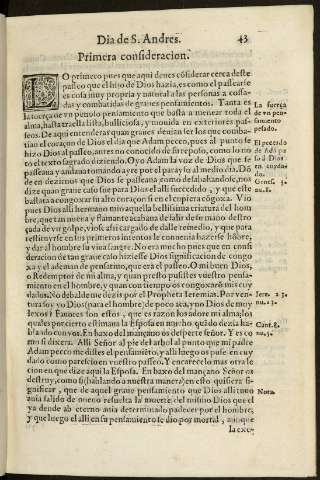 Dia de S. Andres. 43
Primera consideracion.
LO primero pues que aqui deues cõsiderar cerca deste
passeo que el hijo de Dios hazia, es como el passearse
es cosa muy propria y natural a las personas a cossa-
das y combatidas de graues pensamientos. Tanta es
la fuerça de vn pensamiento que basta a menear toda el
alma, hasta traella lista, bulliciosa, y mouida en exteriores pas-
seos. De aqui entenderas quan graues deuian ser los que comba-
tian el coraçon de Dios el dia que Adam pecco, pues al punto se
hizo Dios al passeo, antes no conocido de su reposo, como lo no
to el texto sagrado diziendo. Oyo Adam la voz de Dios que se
passeaua y andaua tomando ayre por el parayso al medio dia. Dõ
de en dezirnos que Dios se passeaua como desafabandose, nos
dize quan graue caso fue para Dios el alli succedido, y que este
bastara a congoxar su alto coraçon si en el cupiera cõgoxa. Vio
pues Dios alli hermano mio aquella bellissima criatura del hom
bre, que tan nueua y flamante acabaua de salir de su mano destro
çada de vn golpe, viose assi cargado de dalle remedio, y que para
restituyrse en sus primeros intentos le conuenia hazerse hõbre,
y dar al hombre su viua sangre. No era mucho pues que en consi
deracion de tan graue caso hiziesse Dios significacion de congo
xa y el ademan de pensatiuo, que era el passeo. O mi buen Dios,
o Redemptor de mi alma, y quan presto pusistes vuestro pensa-
miento en el hombre, y quan con tiempo os congoxarõ mis cuy
dados. No debalde nos dezis por el Propheta Ieremias. Por ven
tura soy yo Dios (para el hombre) de poco aca, y no Dios de muy
lexos? Fauores son estos, que es razon los adore mi alma, los
quales por cierto estimaua la Esposa en mucho quãdo dezia ha-
blando con vos. En baxo del mançano os desperte señor. Y es co
mo si dixera. Alli Señor al pie del arbol al punto que mi padre
Adam pecco me distes el pensamiento, y alli luego os puse en cuy
dado como parecio en vuestro passeo. Y encarece lo mas otra le
cion en que dize aqui la Esposa. En baxo del mançano Señor os
destruy, como si (hablando a nuestra manera) en esto quisiera si-
gnificar, que de aquel graue pensamiento que Dios alli tuuo
auia salido de nueuo resuelta la muerte del mismo Dios que el
ya dende ab eterno auia determinado padecer por el hombre,
y que luego el alli en su pensamiento se dio por mortal, aunque
la exe-
La fuerça
de vn pen-
samiento
pesado.
El peccado
de Adã pu
so a Dios
en cuyda-
do.
Genes. 3.
nu. 8.
Iere. 23.
nu. 23.
Cant. 8.
nu. 5.
Nota.